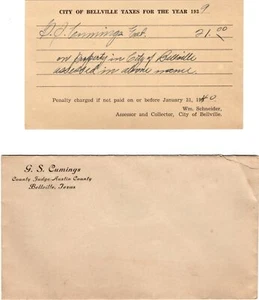 CITY OF BELLVILLE TAXES FOR THE YEAR 1929
G. S. Cummings Est. 21.00
on property in City of Bellville
assessed in above name.
Penalty charged if not paid on or before January 31, 1940.
Wm. Schneider,
Assessor and Collector, City of Bellville.
G. S. Cumings
County Judge Austin County
Bellville, Texas